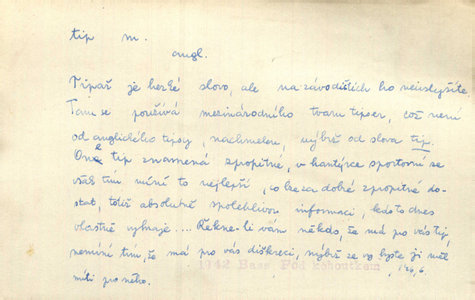 tip m.
angl.
Tipař je hezké slovo, ale na závodištích ho neuslyšíte.
Tam se používá mezinárodního tvaru tipser, což není
od anglického tipsy, nachmelen, nýbrž od slova tip.
One tip znamená zpropitné, v hantýrce sportovní se
však tím míní to nejlepší, co lze za dobré zpropitné do-
stat, totiž absolutně spolehlivou informaci, kdo to dnes
vlastně vyhraje.... Řekne-li vám někdo, že má pro vás tip,
nemíní tím, že má pro vás diškreci, nýbrž že vy byste ji měl
míti pro něho.
1942 Bass Pod kohoutkem, 126,6